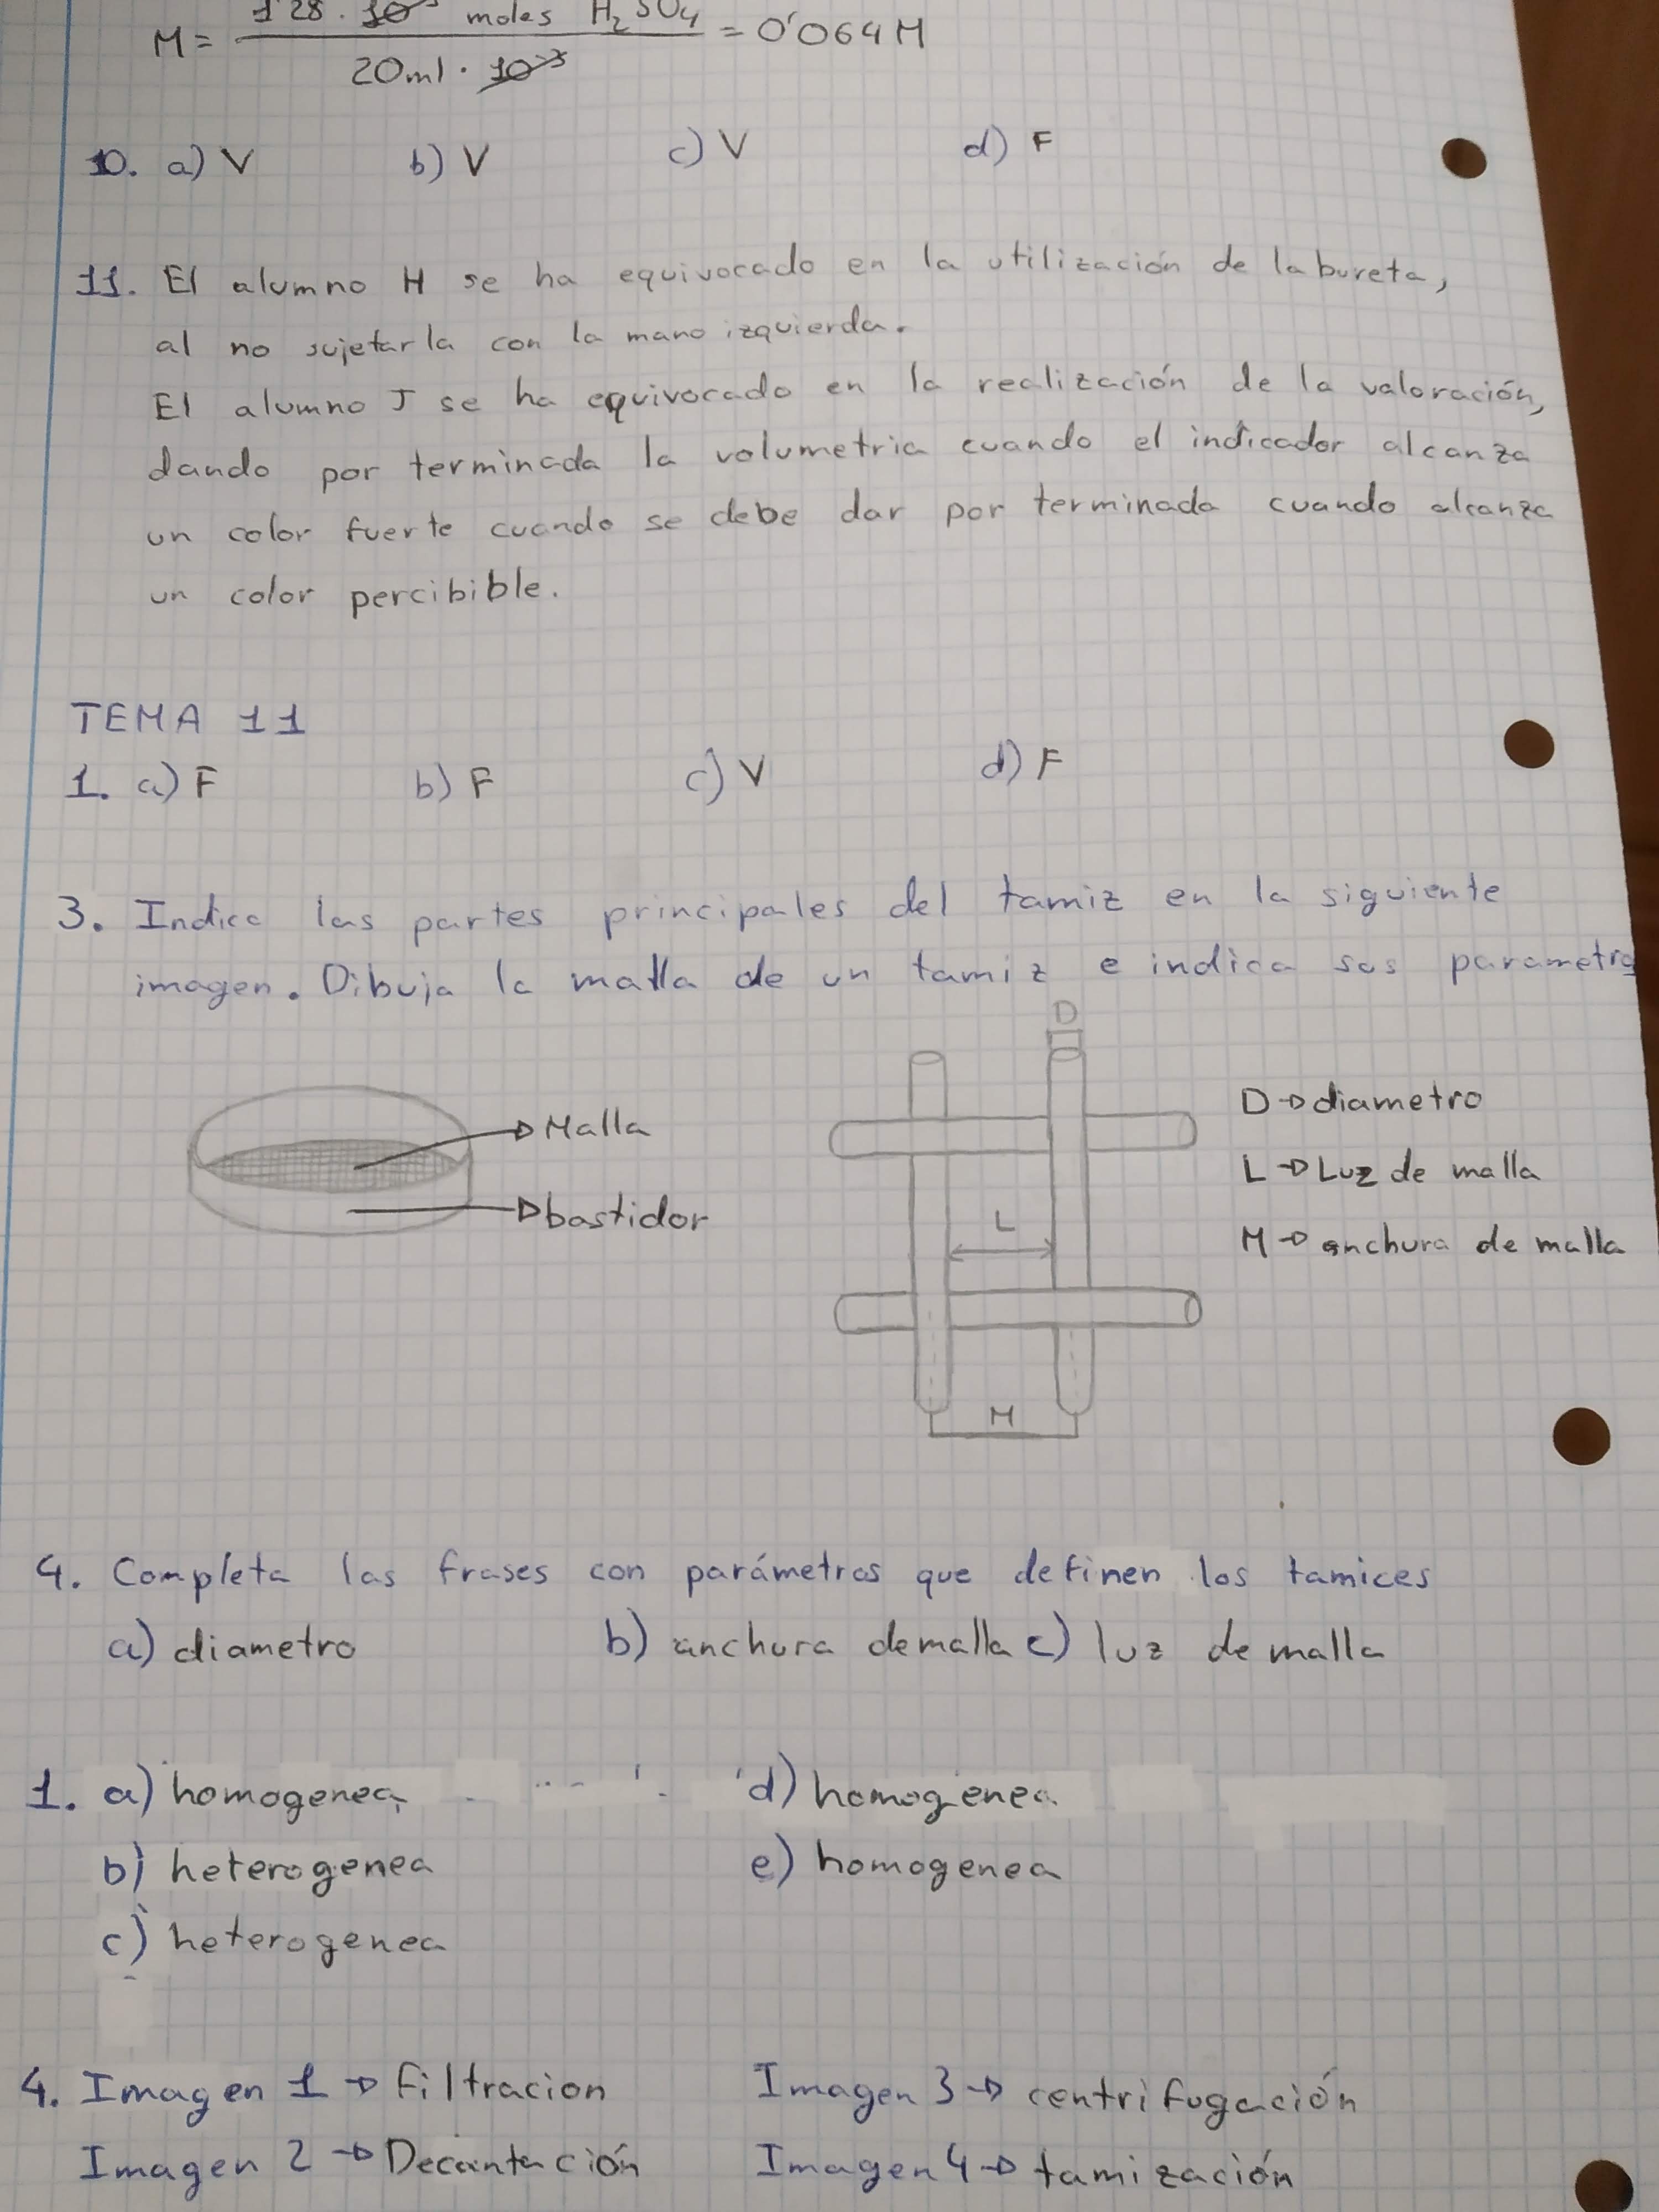 M = 1'28 · 10⁻³ moles H₂SO₄ / 20ml · 10⁻³ = 0'064 M
10. a) V b) V c) V d) F
11. El alumno H se ha equivocado en la utilización de la bureta,
al no sujetarla con la mano izquierda.
El alumno J se ha equivocado en la realización de la valoración,
dando por terminada la volumetria cuando el indicador alcanza
un color fuerte cuando se debe dar por terminada cuando alcanza
un color percibible.
TEMA 11
1. a) F b) F c) V d) F
3. Indica las partes principales del tamiz en la siguiente
imagen. Dibuja la malla de un tamiz e indica sus parametros
D
Malla
bastidor
L
M
D → diametro
L → Luz de malla
M → anchura de malla
4. Completa las frases con parámetros que definen los tamices
a) diametro b) anchura de malla c) luz de malla
1. a) homogenea d) homogenea
b) heterogenea e) homogenea
c) heterogenea
4. Imagen 1 → filtracion Imagen 3 → centrifugación
Imagen 2 → Decantación Imagen 4 → tamización